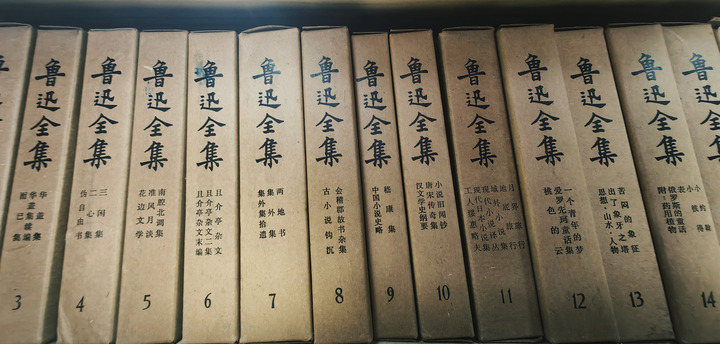 鲁迅全集
华盖集
华盖集续编
而已集
3
鲁迅全集
三闲集
二心集
伪自由书
4
鲁迅全集
南腔北调集
准风月谈
花边文学
5
鲁迅全集
且介亭杂文
且介亭杂文二集
且介亭杂文末编
6
鲁迅全集
两地书
集外集
集外集拾遗
7
鲁迅全集
会稽郡故书杂集
古小说钩沉
8
鲁迅全集
嵇康集
中国小说史略
9
鲁迅全集
小说旧闻钞
唐宋传奇集
汉文学史纲要
10
鲁迅全集
月界旅行
地底旅行
域外小说集
现代小说译丛
现代日本小说集
工人绥惠略夫
11
鲁迅全集
一个青年的梦
爱罗先珂童话集
桃色的云
12
鲁迅全集
苦闷的象征
出了象牙之塔
思想·山水·人物
13
鲁迅全集
小约翰
小彼得
表
俄罗斯的童话
附:药用植物
14